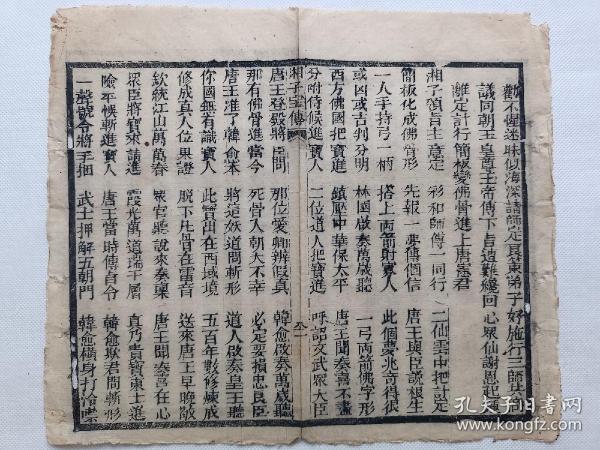 勸不醒迷昧似海深請師定良策弟子好施行三師共
議同朝玉皇尊玉帝傳下旨遣難纔回心眾仙謝恩起
離定計行簡板變佛骨進上唐憲君
湘子領旨主意定 彩和師傅一同行 二仙雲中把計定
簡板化成佛骨形 先報一夢傳個信 唐王與臣說根生
一人手持弓一柄 搭上兩箭射寳人 此個夢兆奇得狠
或凶或吉判分明 林國啟奏萬歲聽 一弓兩箭佛字形
西方佛國把寳進 鎮壓中華保太平 唐王聞奏喜不盡
分咐侍候進寳人 二位道人把寳進 呼詔文武眾大臣
湘子全傳
唐王登殿將臣問 那位愛卿辨假真 韓愈啟奏萬歲聽
那有佛骨進當今 死骨入朝大不幸 必定要損忠良臣
唐王准了韓俞本 將這妖道問斬形 道人啟奏皇王聽
你國無有識寳人 此寳出在西域境 五百年數修煉成
修成真人位果證 脫下凡骨在雷音 送來唐王早晚敬
欽統江山萬萬春 眾官聽說來奏稟 唐王聞奏喜在心
眾臣將寳來請進 霞光萬道瑞千層 真乃貴寳東土進
險乎悞斬進寳人 唐王當時傳旨令 韓愈欺君問斬形
一聲號令將手捆 武士押解五朝門 韓愈橫身打冷噤
孔夫子旧书网
kongfz.com